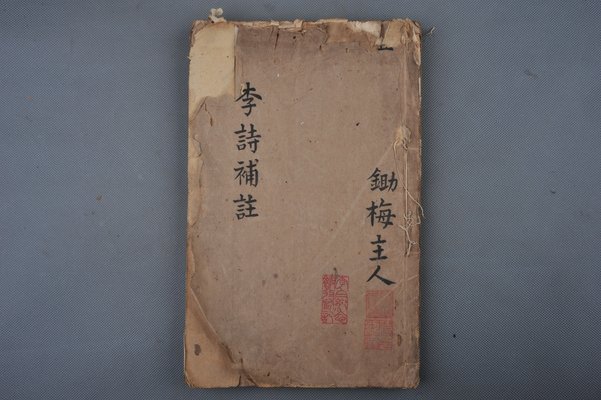 李詩補註
鋤梅主人